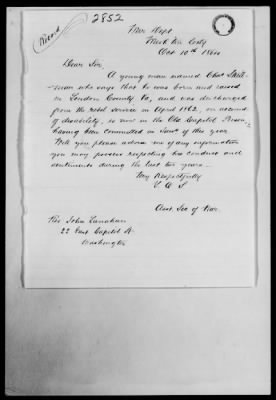 2852
War Dept
Wash'ton City
Oct 10th 1864
Dear Sir,
A young man named Chas
man who says that he was born and raised
in Loudon County Va, and was discharged
from the rebel service in April 1862, on account
of disability, is now in the Old Capitol Prison,
having been committed in of this year
Will you please advise me of any information
you may possess respecting his conduct and
sentiments during the last two years—
Very Respectfully
C A D
Asst Sec of War.
Rev John Lanahan
22 East Capitol St
Washington